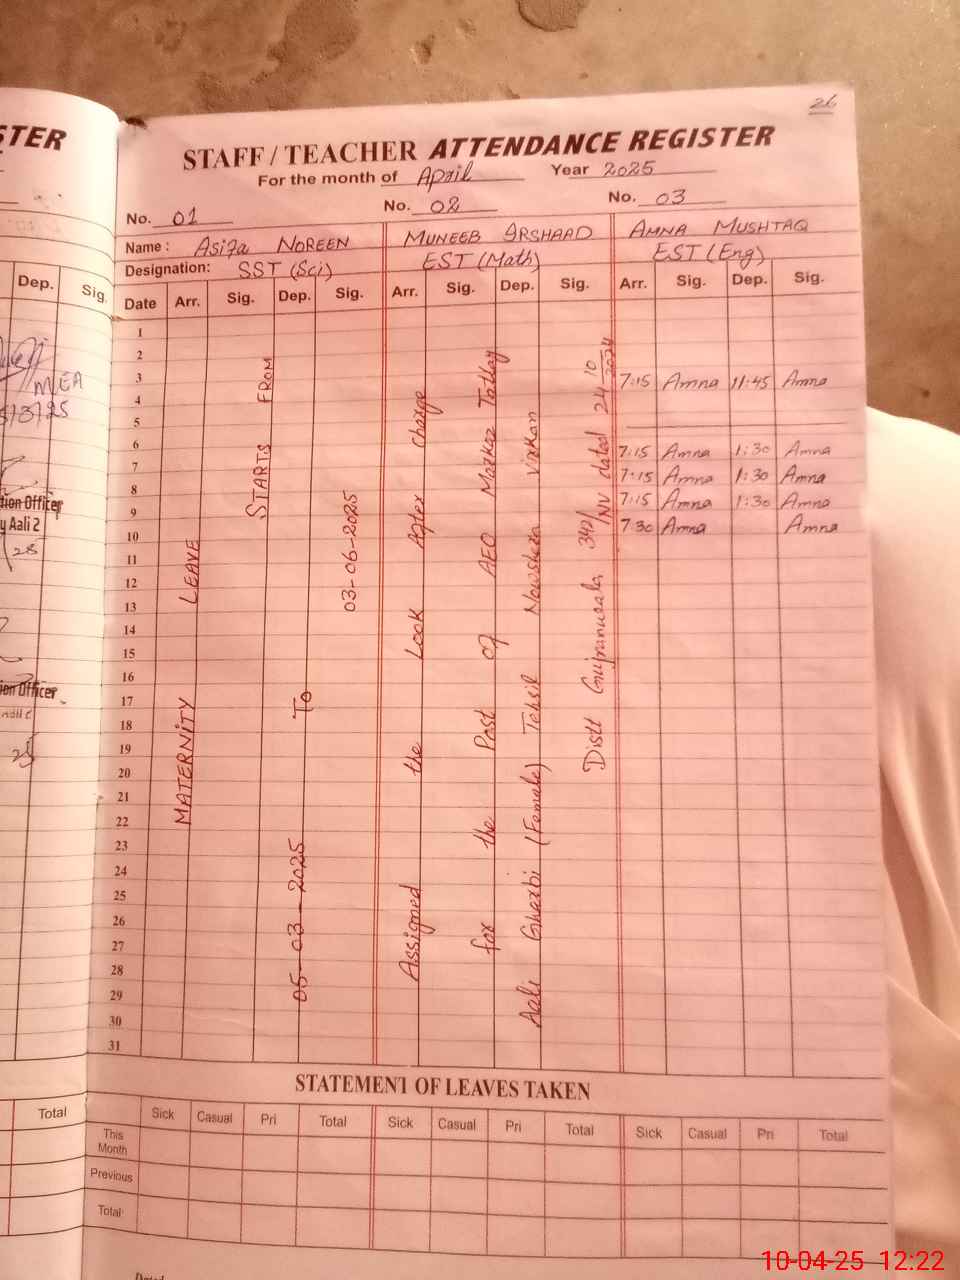 26
STER
STAFF / TEACHER ATTENDANCE REGISTER
For the month of April Year 2025
No. 01 No. 02 No. 03
Name : Asifa NOREEN MUNEEB ARSHAAD AMNA MUSHTAQ
Designation: SST (Sci) EST (Math) EST (Eng)
Dep. Sig.
Date Arr. Sig. Dep. Sig. Arr. Sig. Dep. Sig. Arr. Sig. Dep. Sig.
1
2
3 7:15 Amna 11:45 Amna
4
5
6 7:15 Amna 1:30 Amna
7 7:15 Amna 1:30 Amna
8 7:15 Amna 1:30 Amna
9 7:30 Amna Amna
10
11
12
13
14
15
16
17
18
19
20
21
22
23
24
25
26
27
28
29
30
31
MATERNITY LEAVE
STARTS FROM
05-03-2025 To
03-06-2025
Assigned the Look After charge
for the Post of AEO Markaz Tatlay
Aali Gharbi (Female) Tehsil Nowshera virkan
Distt Gujranwala 342/NV dated 24 10 2024
MEA
tion Officer
y Aali 2
ion Officer
STATEMENT OF LEAVES TAKEN
Total
Sick Casual Pri Total Sick Casual Pri Total Sick Casual Pri Total
This Month
Previous
Total
10-04-25 12:22